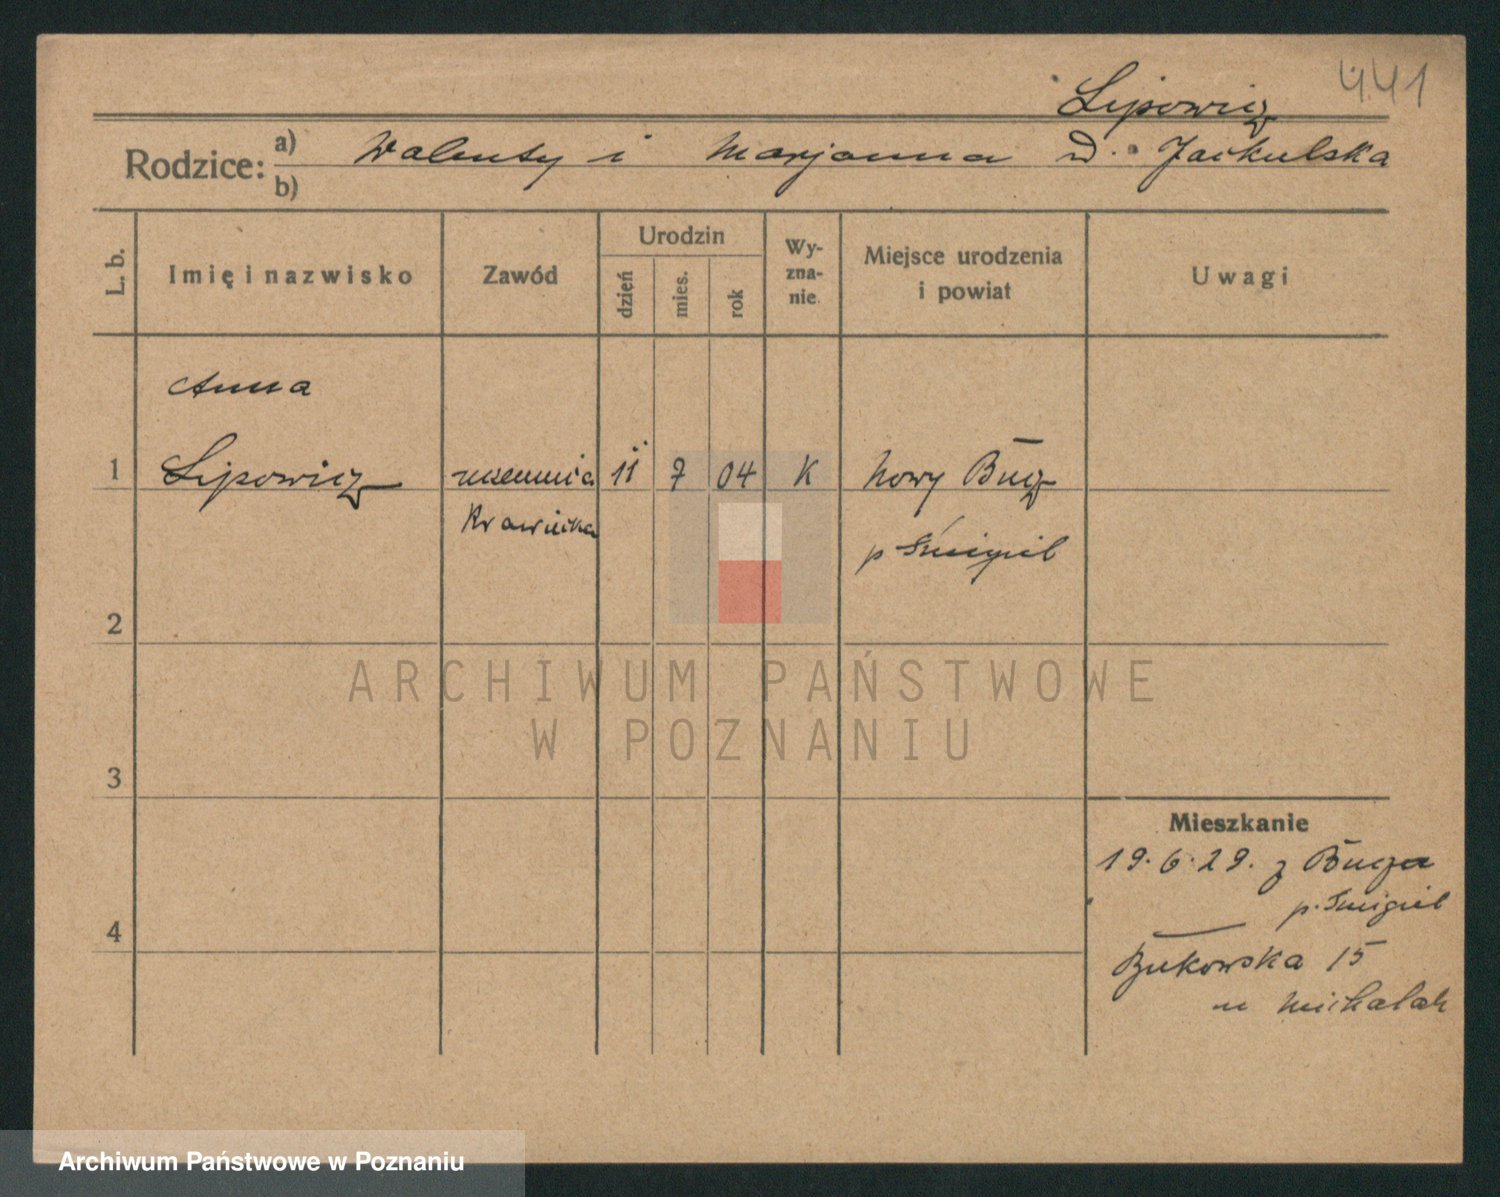 441
Lipowicz
Rodzice: a) Walenty i Marjanna d. Jaskulska
b)
L. b.
Imię i nazwisko
Zawód
Urodzin
dzień
mies.
rok
Wy-
zna-
nie
Miejsce urodzenia
i powiat
Uwagi
Anna
1 Lipowicz uczennica 11 7 04 K Nowy Bucz
krawiecka
p Śmigiel
2
3
4
ARCHIWUM PAŃSTWOWE
W POZNANIU
Mieszkanie
19.6.29. z Bucza
p. Śmigiel
Bukowska 15
u Michalak
Archiwum Państwowe w Poznaniu